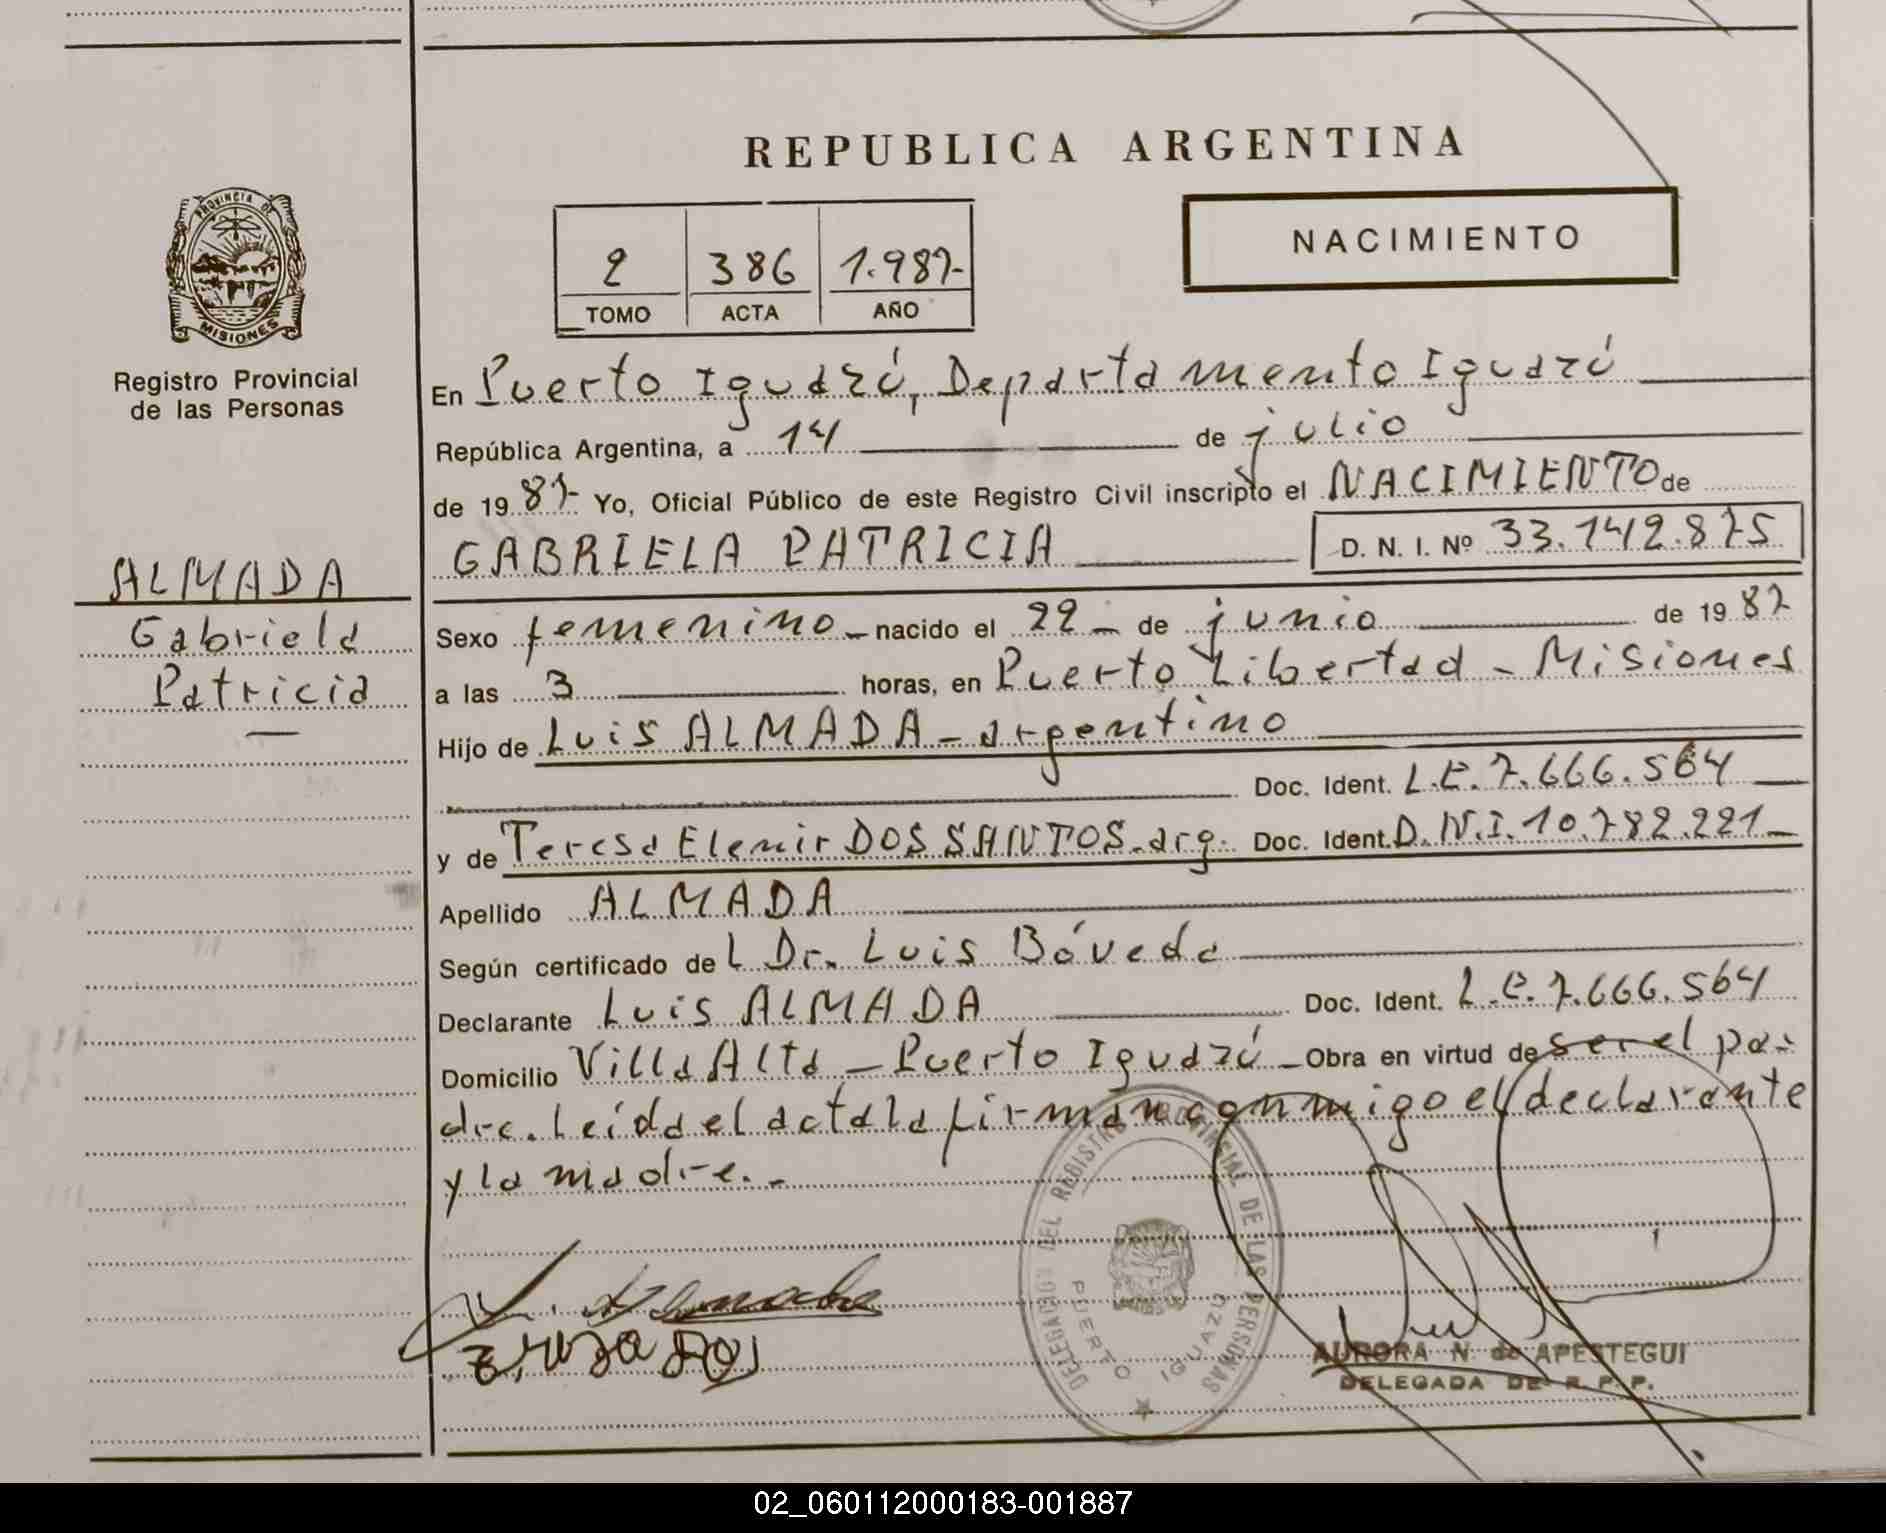 REPUBLICA ARGENTINA
NACIMIENTO
2 386 1.987-
TOMO ACTA AÑO
PROVINCIA DE
MISIONES
Registro Provincial
de las Personas
En Puerto Iguazú, Departamento Iguazú
República Argentina, a 14 de julio
de 1987- Yo, Oficial Público de este Registro Civil inscripto el NACIMIENTO de
GABRIELA PATRICIA D. N. I. Nº 33.142.875
ALMADA
Gabriela
Patricia
Sexo femenino - nacido el 22 - de junio de 1987
a las 3 horas, en Puerto Libertad - Misiones
Hijo de Luis ALMADA - argentino
Doc. Ident. L.E. 7.666.564
y de Teresa Elenir DOS SANTOS - arg. Doc. Ident. D.N.I. 10.782.221 -
Apellido ALMADA
Según certificado del Dr. Luis Bóveda
Declarante Luis ALMADA Doc. Ident. L.E. 7.666.564
Domicilio Villa Alta - Puerto Iguazú - Obra en virtud de ser el pa-
dre. Leída el acta la firman conmigo el declarante
y la madre. -
DELEGACION DEL REGISTRO PROVINCIAL DE LAS PERSONAS
PUERTO IGUAZU
AURORA N. de APESTEGUI
DELEGADA DE R. P. P.
02_060112000183-001887